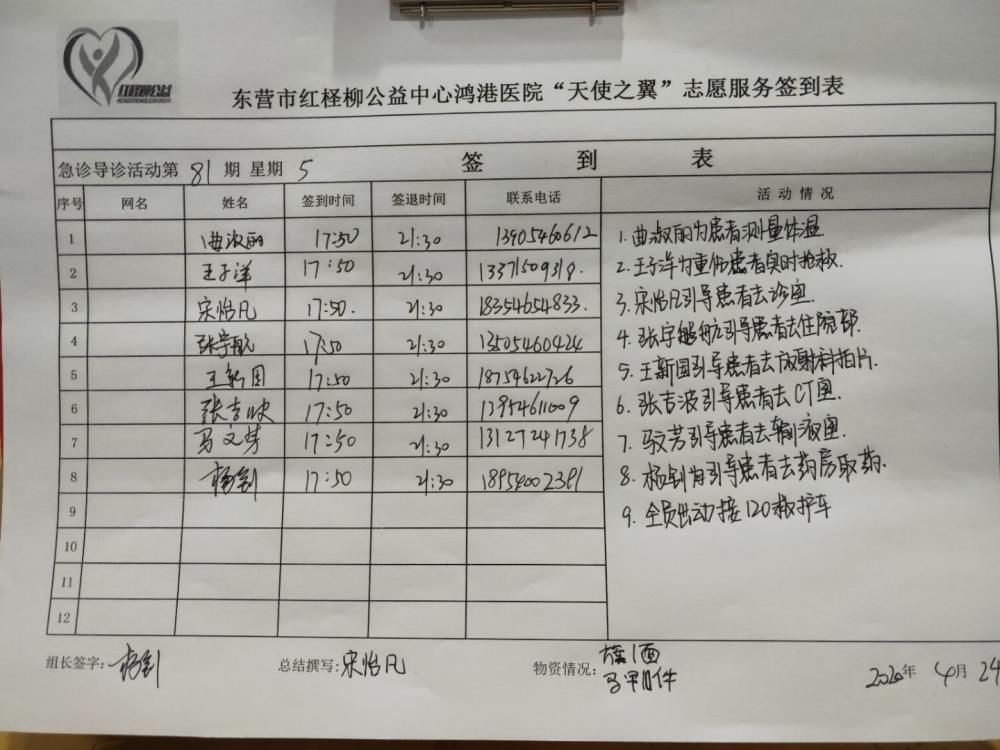 红柽柳公益
东营市红柽柳公益中心鸿港医院“天使之翼”志愿服务签到表
急诊导诊活动第 81 期 星期 5 签到表
序号 网名 姓名 签到时间 签退时间 联系电话 活动情况
1 曲淑丽 17:50 21:30 13905460612
2 王子洋 17:50 21:30 13371509318.
3 宋怡凡 17:50. 21:30 18354654833.
4 张宇航 17:50 21:30 13505460424
5 王新国 17:50 21:30 18754622726
6 张吉波 17:50 21:30 13954611009
7 马文芳 17:50 21:30 13127241738
8 杨钊 17:50 21:30 18954002391
9
10
11
12
1.曲淑丽为患者测量体温.
2.王子洋为重伤患者实时抢救.
3.宋怡凡引导患者去诊室.
4.张宇航引导患者去住院部.
5.王新国引导患者去放射科拍片.
6.张吉波引导患者去CT室.
7.马文芳引导患者去输液室.
8.杨钊为引导患者去药房取药.
9.全员出动接120救护车
组长签字: 杨钊 总结撰写: 宋怡凡 物资情况: 旗1面
马甲11件
2020年 4月 24